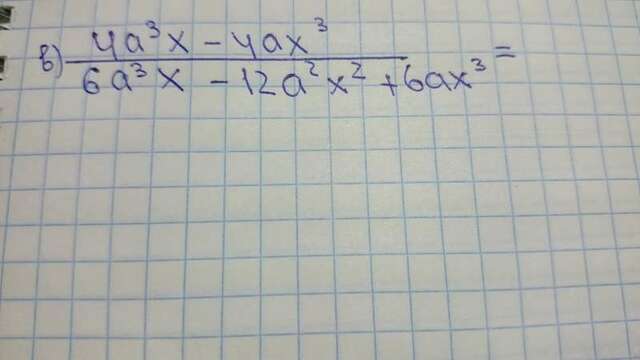 в) 4a³x - 4ax³
6a³x - 12a²x² + 6ax³ =